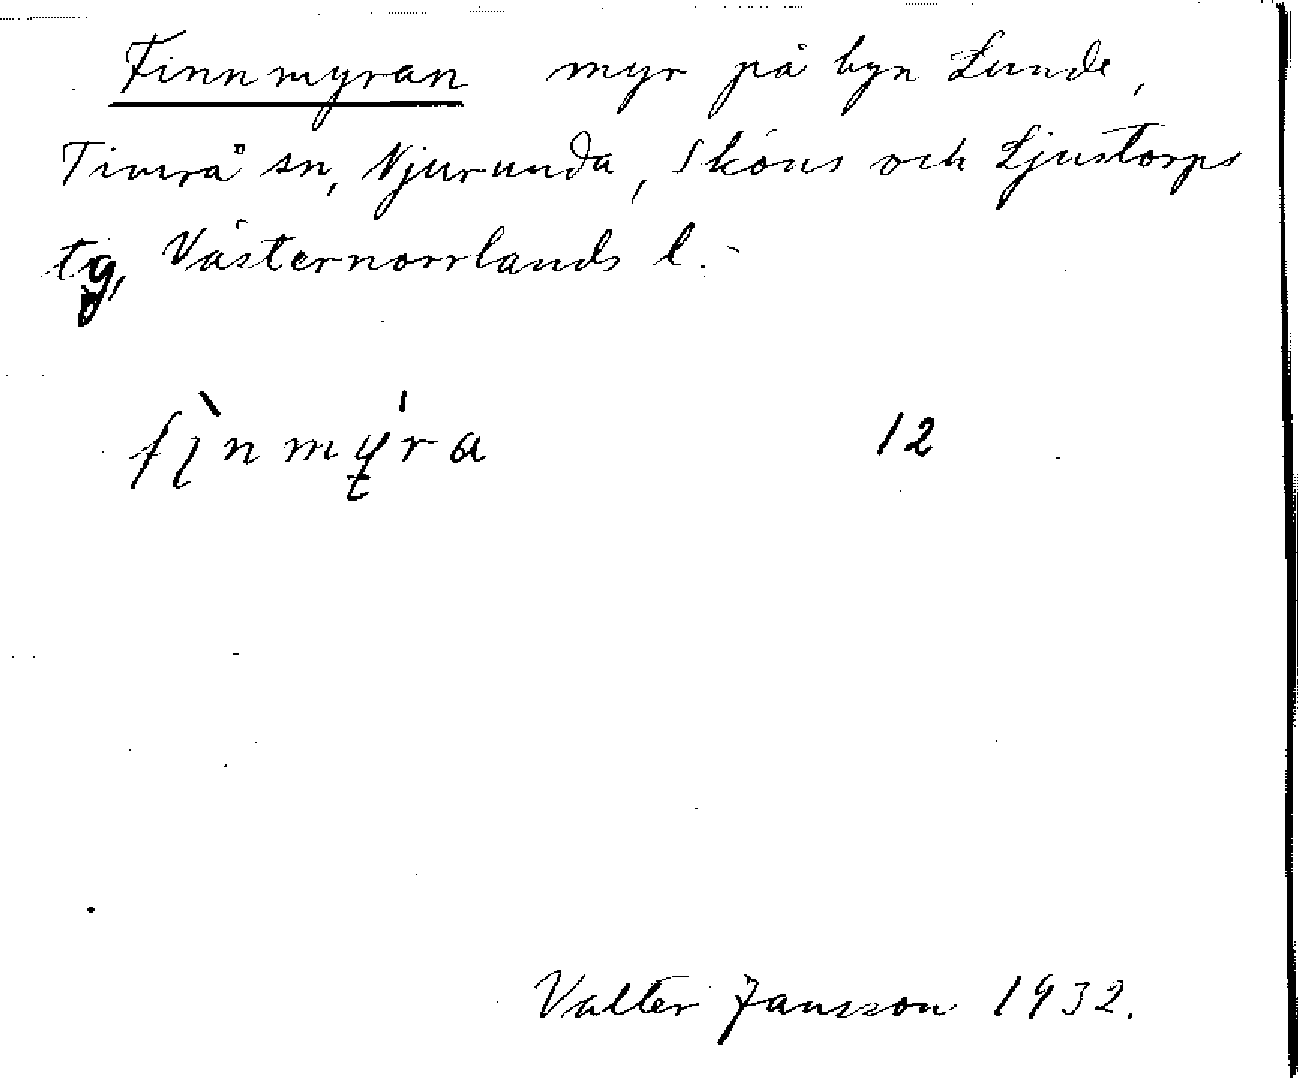 Finnmyran myr på byn Lunde,
Timrå sn, Njurunda, Sköns och Ljustorps
tg, Västernorrlands l.
fı̨̀nmý̨ra 12
Valter Jansson 1932.